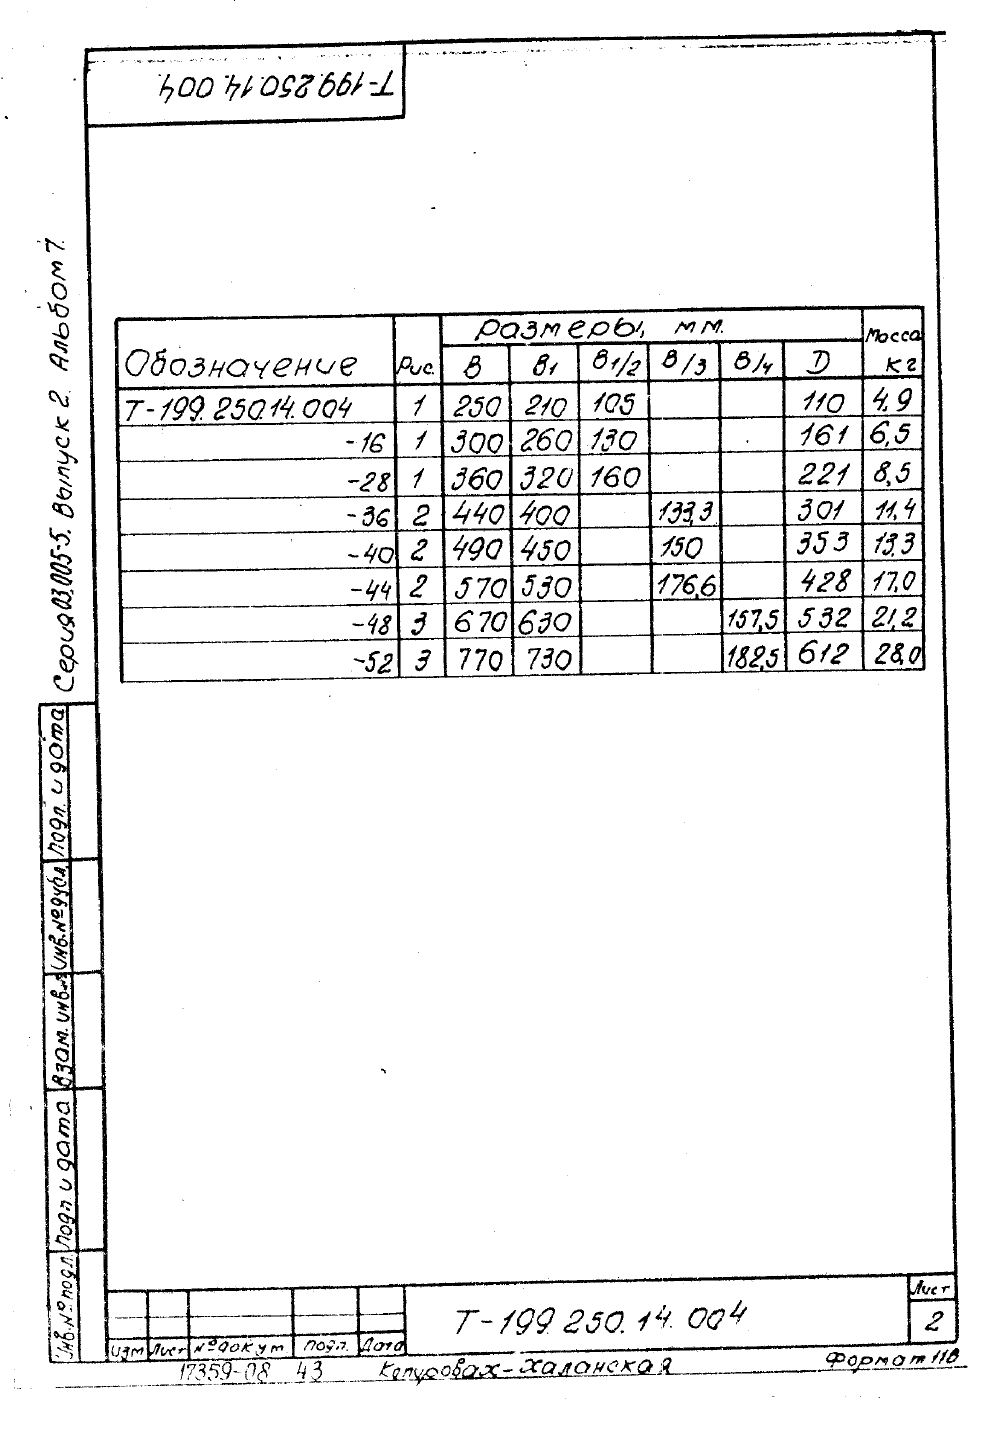 Т-199.250.14.004
Серия 03.005-5. Выпуск 2. Альбом 7.
Обозначение Рис. Размеры, мм. Масса кг
В В1 В1/2 В/3 В/4 D
Т-199.250.14.004 1 250 210 105 110 4,9
-16 1 300 260 130 161 6,5
-28 1 360 320 160 221 8,5
-36 2 440 400 133,3 301 11,4
-40 2 490 450 150 353 13,3
-44 2 570 530 176,6 428 17,0
-48 3 670 630 157,5 532 21,2
-52 3 770 730 182,5 612 28,0
Подп. и дата
Инв.№дубл.
Взам. инв.№
Подп и дата
Инв.№подл.
Изм Лист №докум Подп. Дата
Т-199.250.14.004
Лист
2
17359-08 43 Халанская Формат 11В